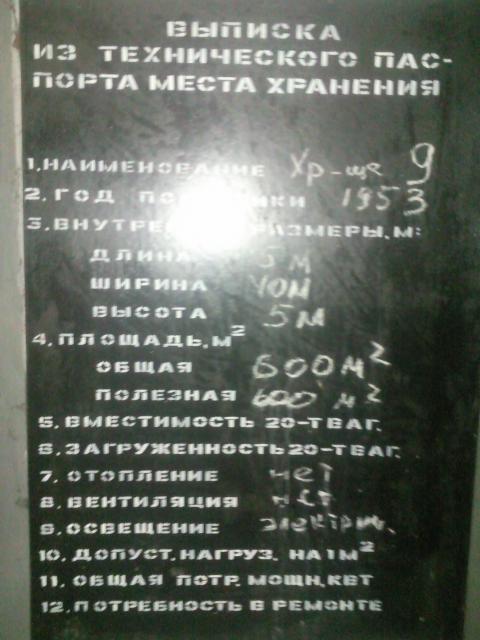 ВЫПИСКА
ИЗ ТЕХНИЧЕСКОГО ПАС-
ПОРТА МЕСТА ХРАНЕНИЯ
1. НАИМЕНОВАНИЕ Хр-ще 9
2. ГОД 1953
3. ВНУТРЕ РАЗМЕРЫ, М:
ДЛИНА 5 м
ШИРИНА 40м
ВЫСОТА 5 м
4. ПЛОЩАДЬ, М²
ОБЩАЯ 600 м²
ПОЛЕЗНАЯ 600 м²
5. ВМЕСТИМОСТЬ 20-Т ВАГ.
6. ЗАГРУЖЕННОСТЬ 20-Т ВАГ.
7. ОТОПЛЕНИЕ нет
8. ВЕНТИЛЯЦИЯ нет
9. ОСВЕЩЕНИЕ электрич.
10. ДОПУСТ. НАГРУЗ. НА 1М²
11. ОБЩАЯ ПОТР. МОЩН. КВТ
12. ПОТРЕБНОСТЬ В РЕМОНТЕ